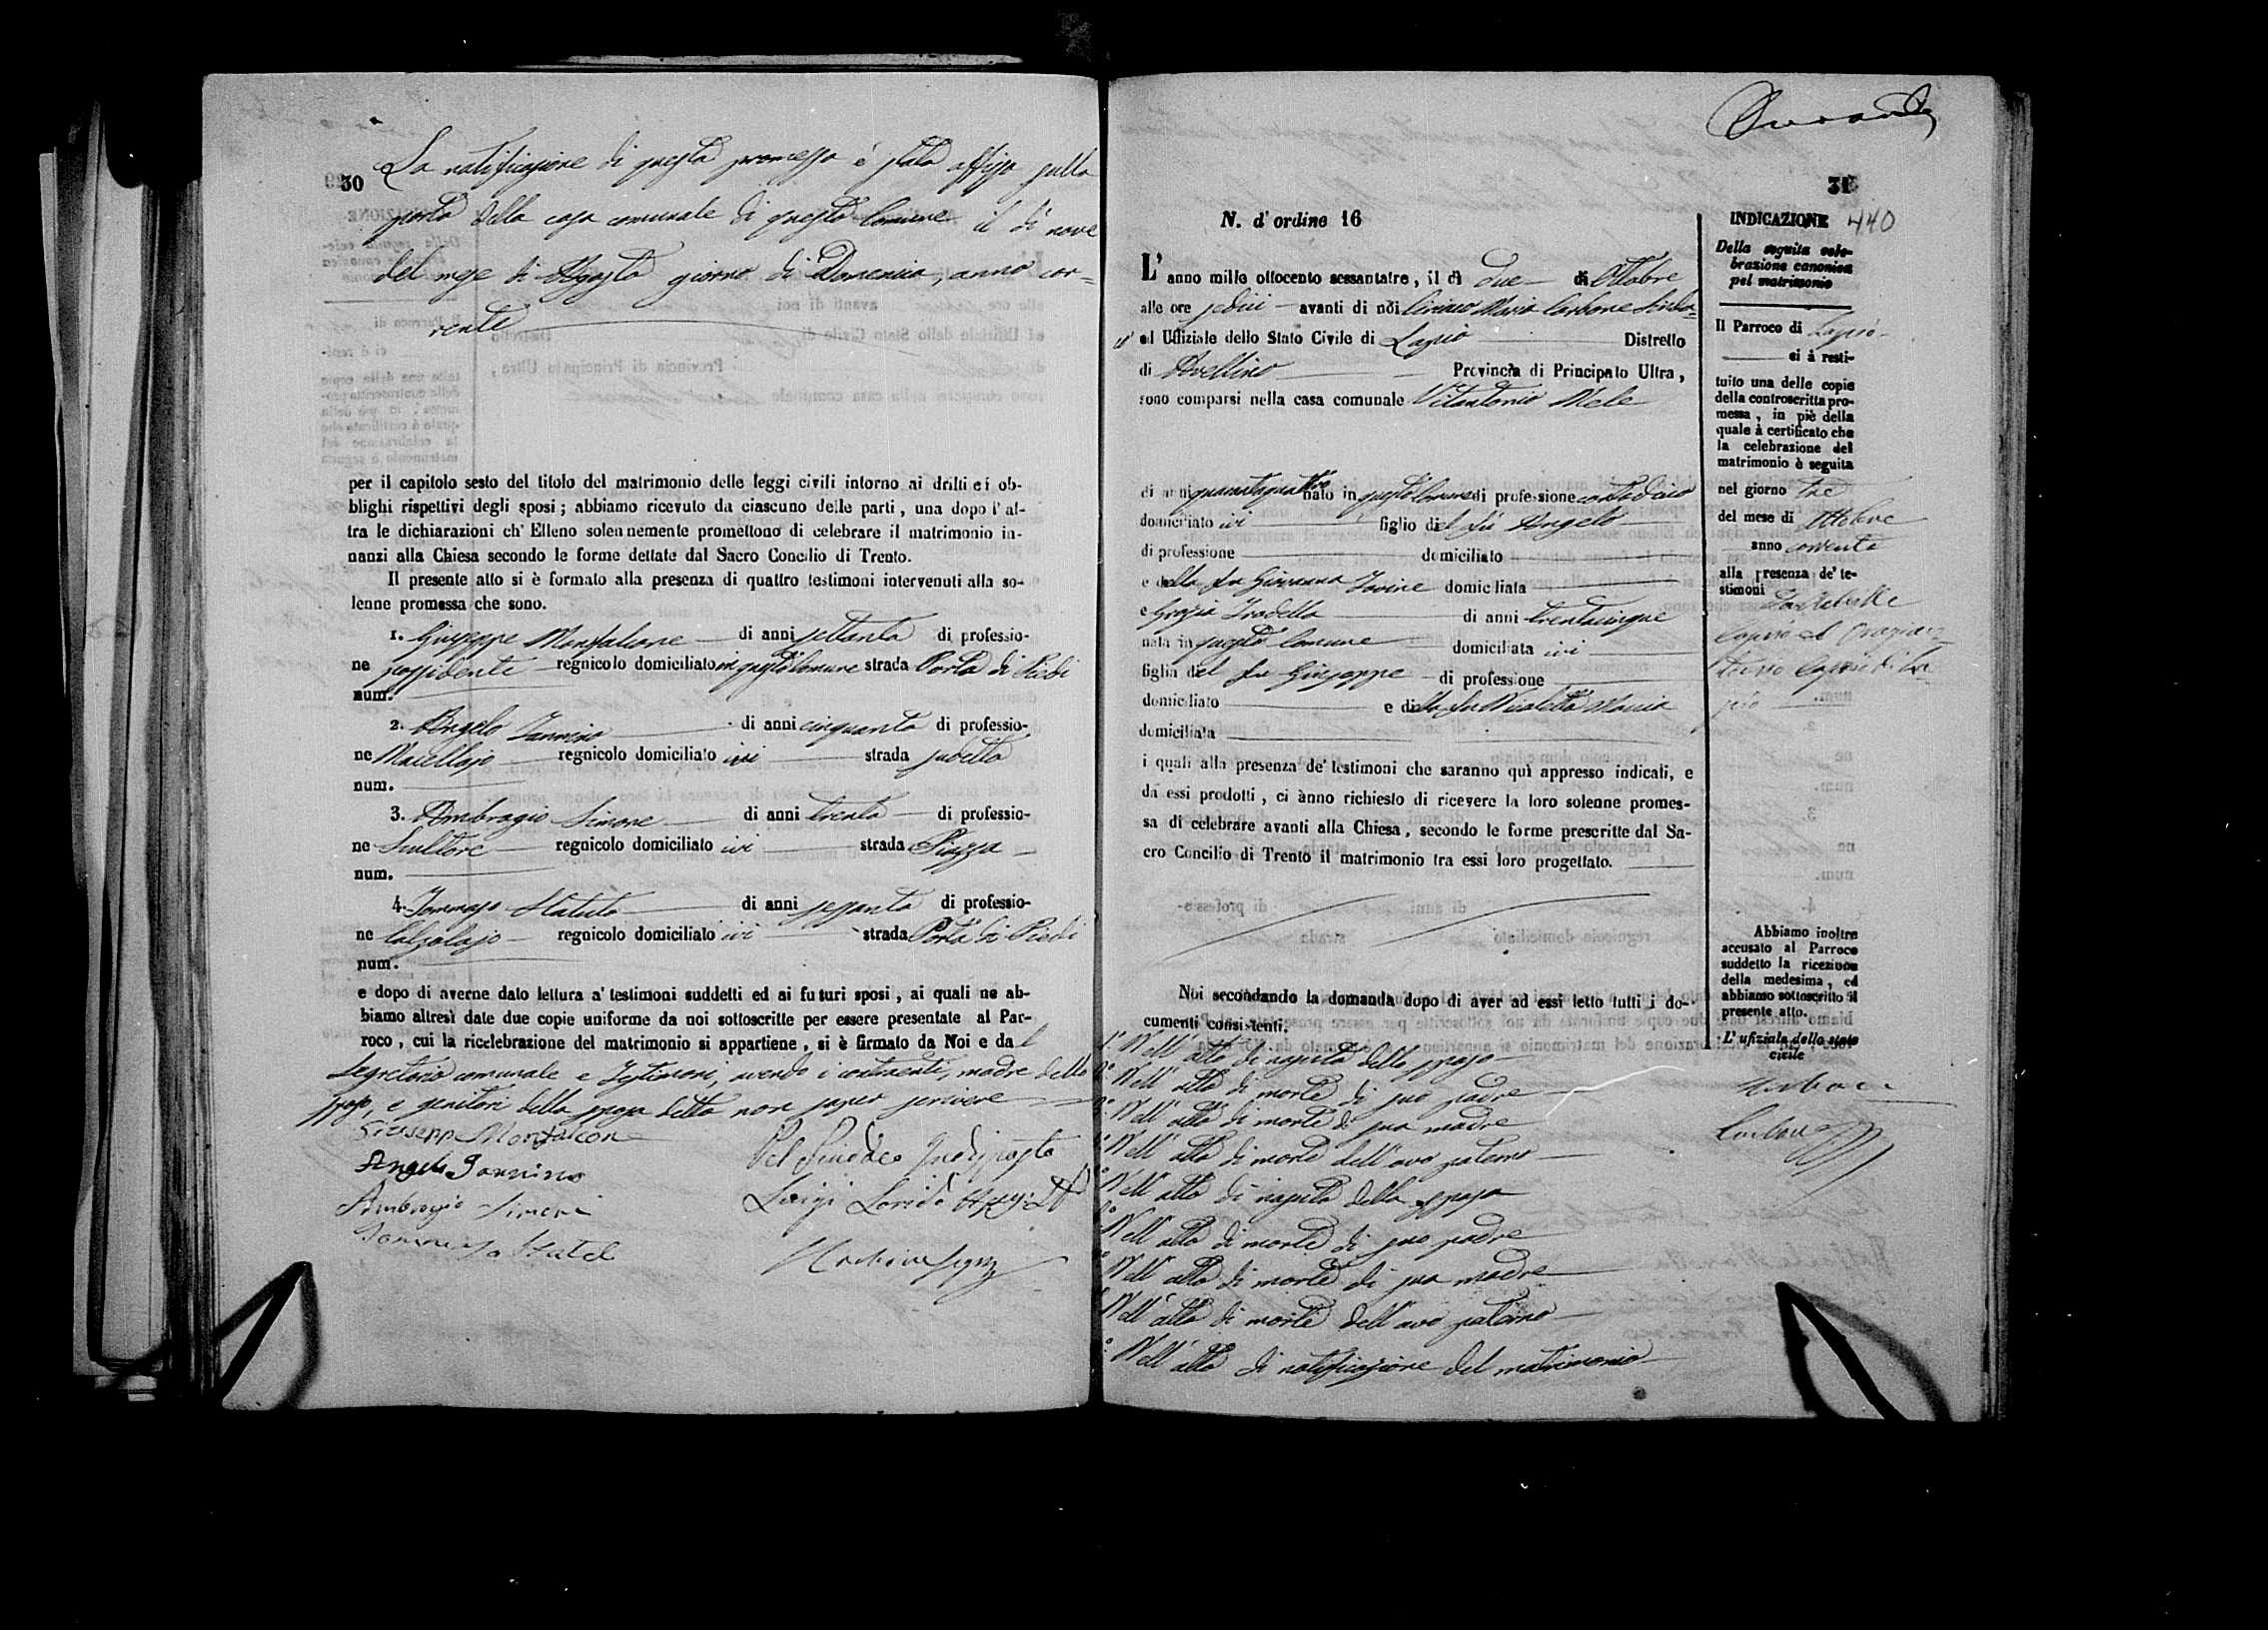 30
La notificazione di questa promessa è stata affissa sulla
porta della casa comunale di questo Comune il dì nove
del mese di Agosto giorno di Domenica, anno cor-
rente
per il capitolo sesto del titolo del matrimonio delle leggi civili intorno ai dritti ei ob-
blighi rispettivi degli sposi; abbiamo ricevuto da ciascuno delle parti, una dopo l'al-
tra le dichiarazioni ch' Elleno solennemente promettono di celebrare il matrimonio in-
nanzi alla Chiesa secondo le forme dettate dal Sacro Concilio di Trento.
Il presente atto si è formato alla presenza di quattro testimoni intervenuti alla so-
lenne promessa che sono.
1. Giuseppe Monfalcone di anni settanta di professio-
ne possidente regnicolo domiciliato in questo Comune strada Porta di Piedi
num.
2. Angelo Iannino di anni cinquanta di professio-
ne Macellajo regnicolo domiciliato ivi strada sudetta
num.
3. Ambrogio Simone di anni trenta di professio-
ne Scultore regnicolo domiciliato ivi strada Piazza
num.
4. Tommaso Statuto di anni sessanta di professio-
ne Calzolajo regnicolo domiciliato ivi strada Porta di Piedi
num.
e dopo di averne dato lettura a' testimoni suddetti ed ai futuri sposi, ai quali ne ab-
biamo altresì date due copie uniforme da noi sottoscritte per essere presentate al Par-
roco, cui la ricelebrazione del matrimonio si appartiene, si è firmato da Noi e dal
Segretario comunale e Testimoni, avendo i contraenti, madre dello
sposo, e genitori della sposa detto non saper scrivere
Giuseppe Monfalcone
Angelo Iannino
Ambrogio Simone
Pel Sindaco Indisposto
Luigi
31
440
N. d'ordine 16
L'anno mille ottocento sessantatre, il dì due di Ottobre
alle ore sedici avanti di noi Ciriaco Maria Carbone Sinda-
ed Uffiziale dello Stato Civile di Lapio Distretto
di Avellino Provincia di Principato Ultra,
sono comparsi nella casa comunale Vitantonio Mele
di anni quarantaquattro nato in questo Comune di professione contadino
domiciliato ivi figlio del fu Angelo
di professione domiciliato
e della fu Giovanna Iovine domiciliata
e Grazia di anni trentacinque
nata in questo Comune domiciliata ivi
figlia del fu Giuseppe di professione
domiciliato e della fu Nicoletta
domiciliata
i quali alla presenza de' testimoni che saranno quì appresso indicati, e
da essi prodotti, ci ànno richiesto di ricevere la loro solenne promes-
sa di celebrare avanti alla Chiesa, secondo le forme prescritte dal Sa-
cro Concilio di Trento il matrimonio tra essi loro progettato.
Noi secondando la domanda dopo di aver ad essi letto tutti i do-
cumenti consistenti.
1° Nell'atto di nascita dello sposo
Nell'atto di morte di suo padre
Nell'atto di morte di sua madre
Nell'atto di morte dell'avo paterno
Nell'atto di nascita della sposa
Nell'atto di morte di suo padre
Nell'atto di morte di sua madre
Nell'atto di morte dell'avo paterno
Nell'atto di notificazione del matrimonio
INDICAZIONE
Della seguita cele-
brazione canonica
pel matrimonio
Il Parroco di Lapio
ci à resti-
tuito una delle copie
della controscritta pro-
messa, in piè della
quale à certificato che
la celebrazione del
matrimonio è seguita
nel giorno tre
del mese di Ottobre
anno corrente
alla presenza de' te-
stimoni
Abbiamo inoltre
accusato al Parroco
suddetto la ricezione
della medesima, ed
abbiamo sottoscritto il
presente atto.
L'ufiziale dello stato
civile
Carbone